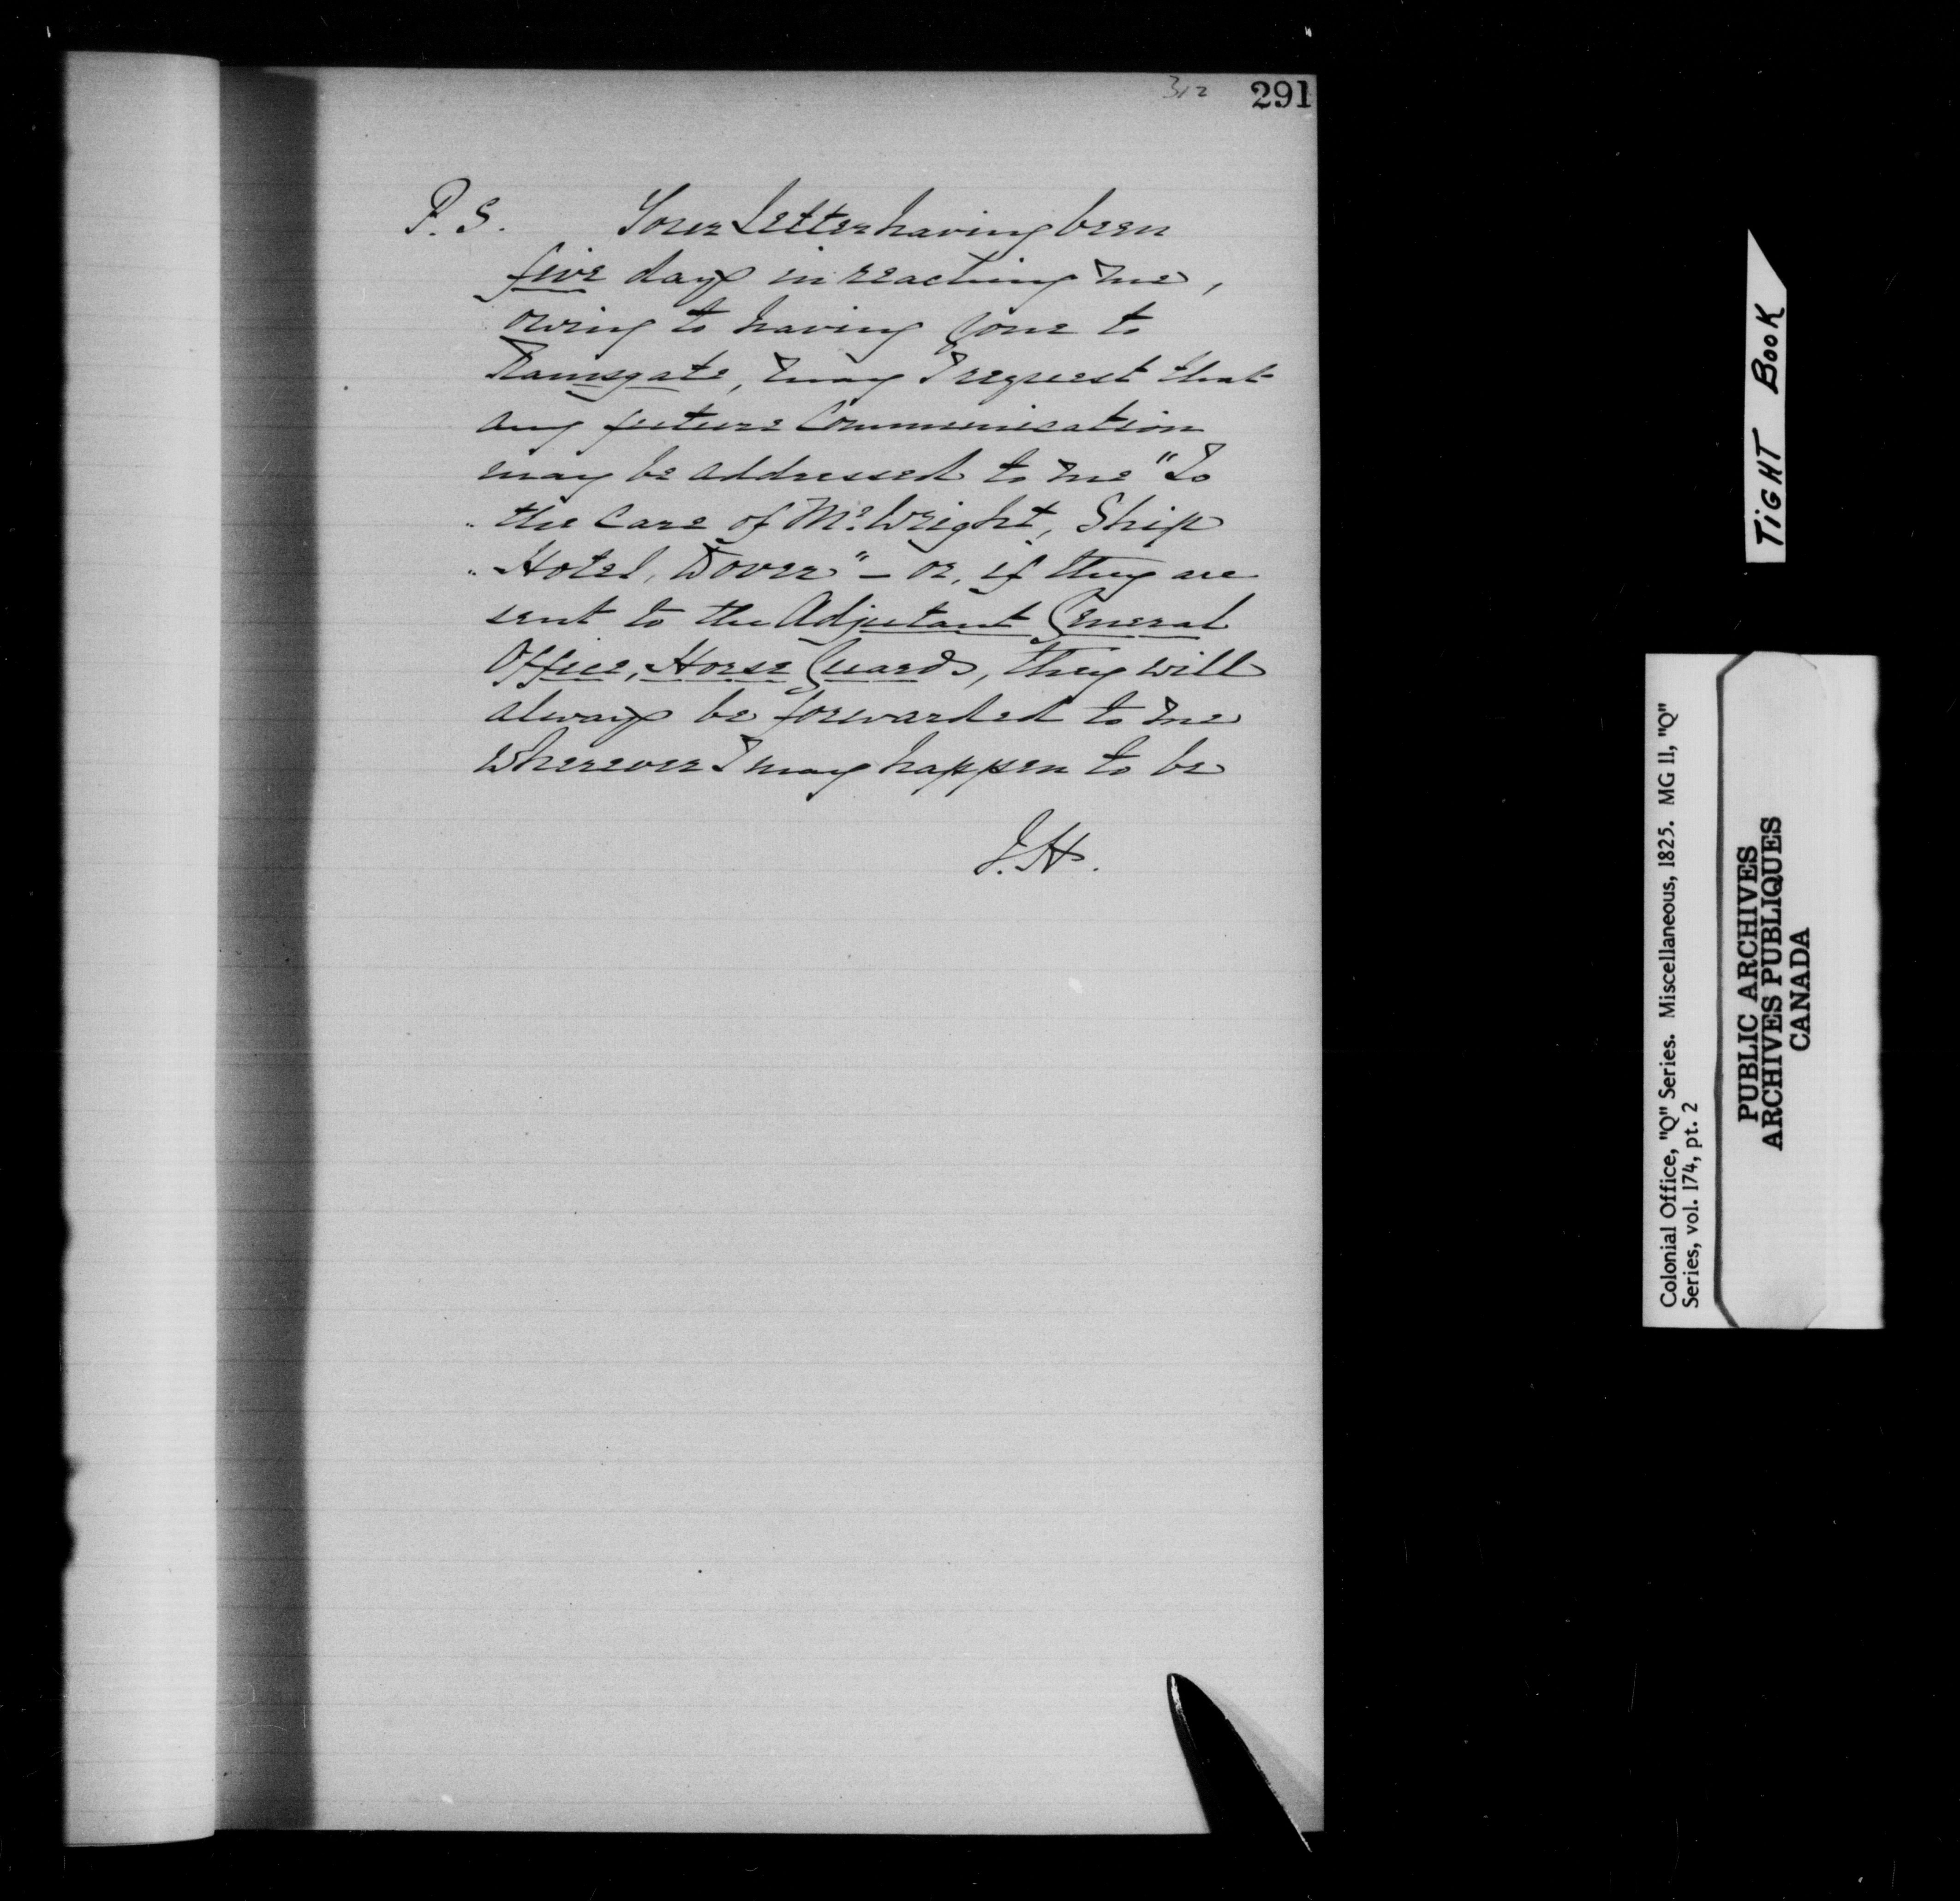 312 291
P. S. Your Letter having been
five days in reaching me,
owing to having gone to
Ramsgate, may I request that
any future Communication
may be addressed to me "To
"the Care of Mr. Wright, Ship
"Hotel, Dover" – or, if they are
sent to the Adjutant General
Office, Horse Guards, they will
always be forwarded to me
wherever I may happen to be
J. H.
TIGHT BOOK
Colonial Office, "Q" Series. Miscellaneous, 1825. MG 11, "Q"
Series, vol. 174, pt. 2
PUBLIC ARCHIVES
ARCHIVES PUBLIQUES
CANADA